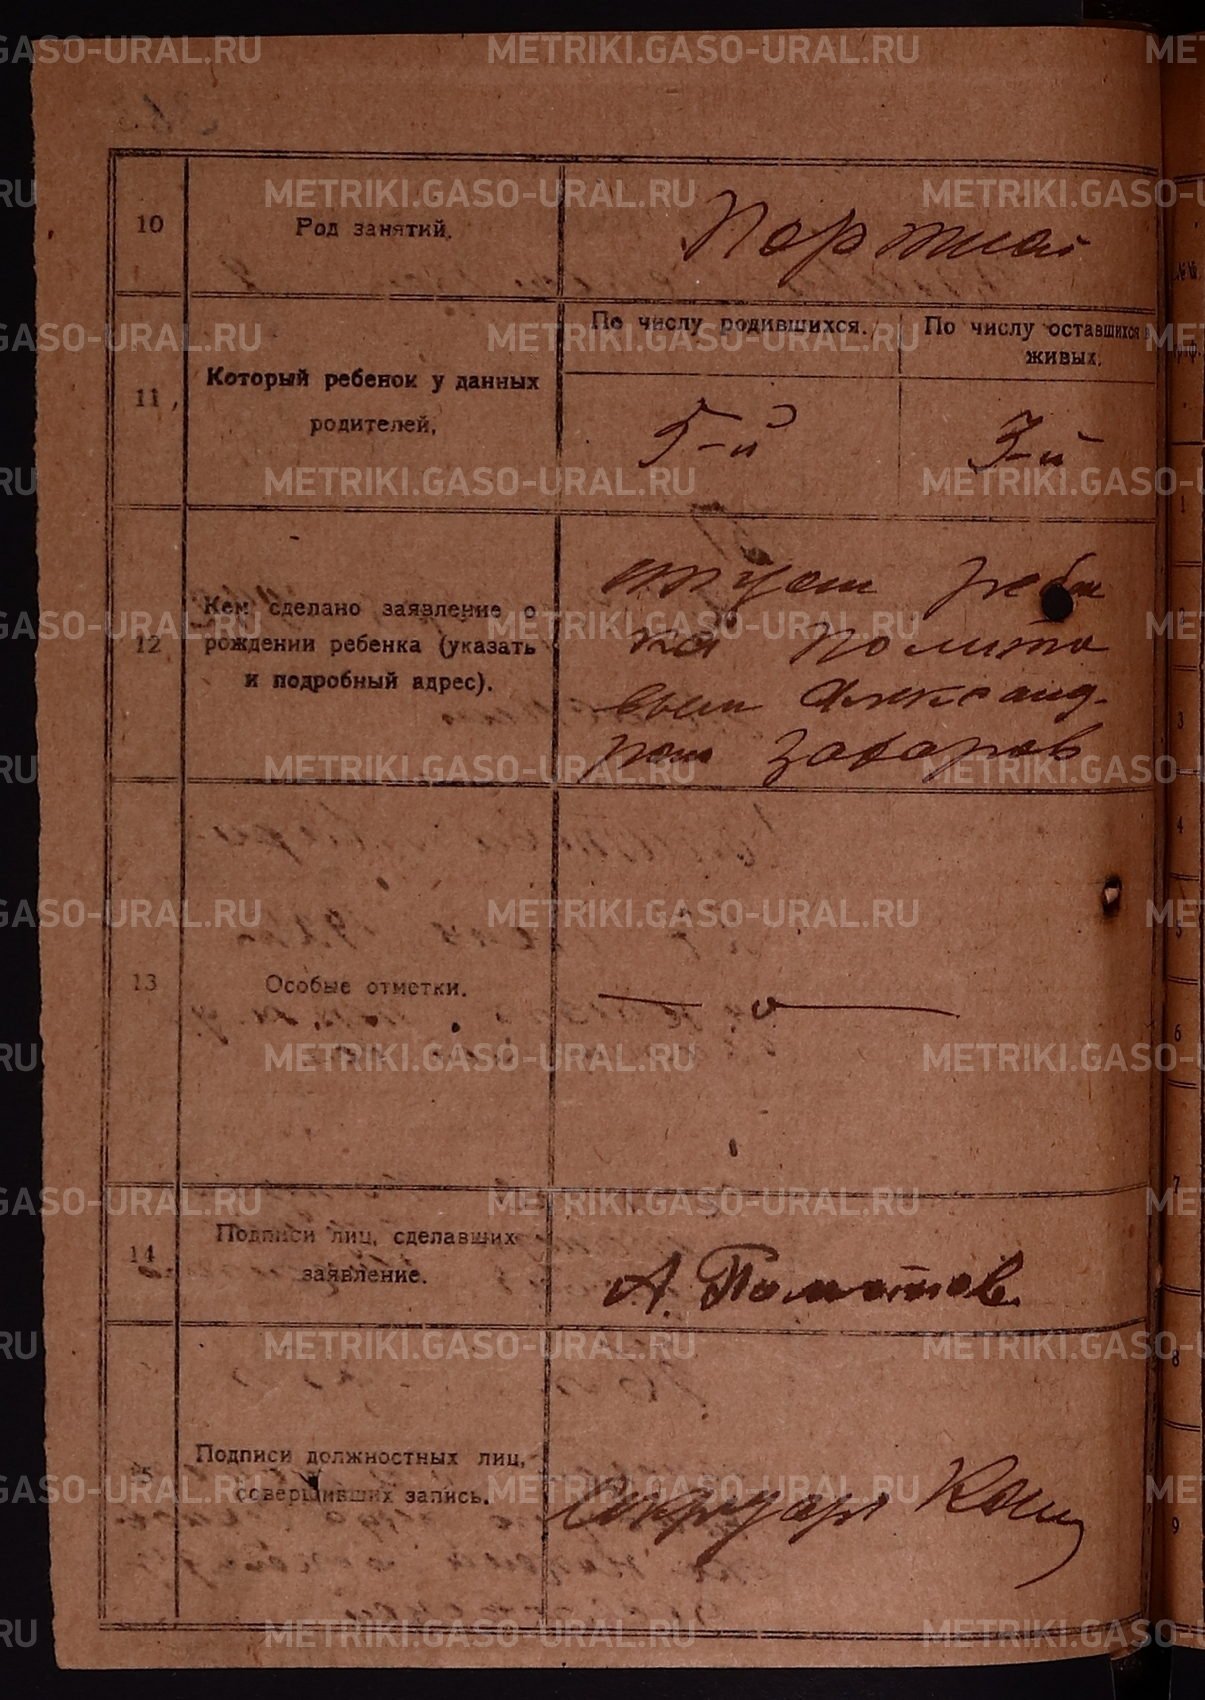 10
Род занятий.
Портной
11
Который ребенок у данных
родителей.
По числу родившихся.
По числу оставшихся в
живых.
5-й
3-й
12
Кем сделано заявление о
рождении ребенка (указать
и подробный адрес).
отцом ребен
ка
вым Александ-
ром Захаров
13
Особые отметки.
14
Подписи лиц, сделавших
заявление.
А.
15
Подписи должностных лиц,
совершивших запись.
Секретарь
1
3
4
5
6
7
8
9
METRIKI.GASO-URAL.RU